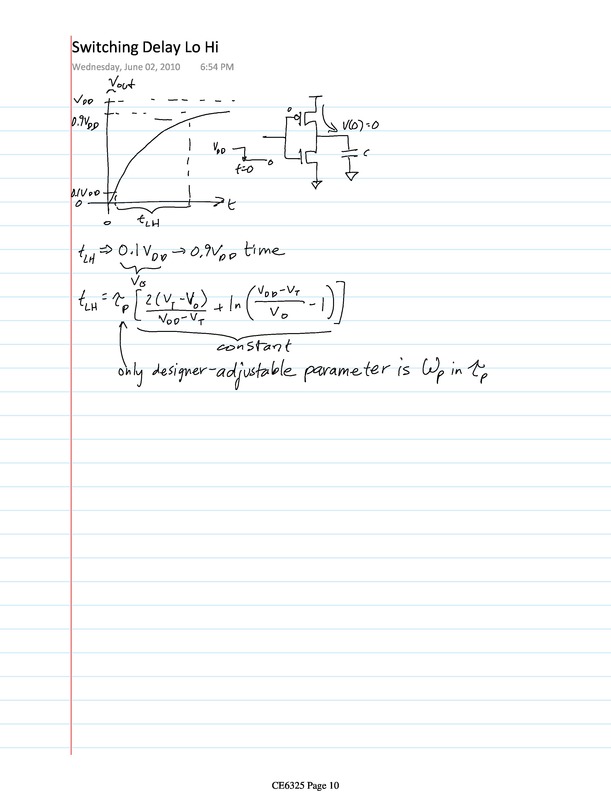 Switching Delay Lo Hi
Wednesday, June 02, 2010 6:54 PM
Vout
VDD
0.9VDD
0.1VDD
0
0
tLH
t
VDD
t=0
0
V(0)=0
C
tLH ⇒ 0.1VDD → 0.9VDD time
V0
tLH = τp [ 2(VT-V0) / (VDD-VT) + ln( (VDD-VT) / V0 - 1 ) ]
constant
only designer-adjustable parameter is Wp in τp
CE6325 Page 10